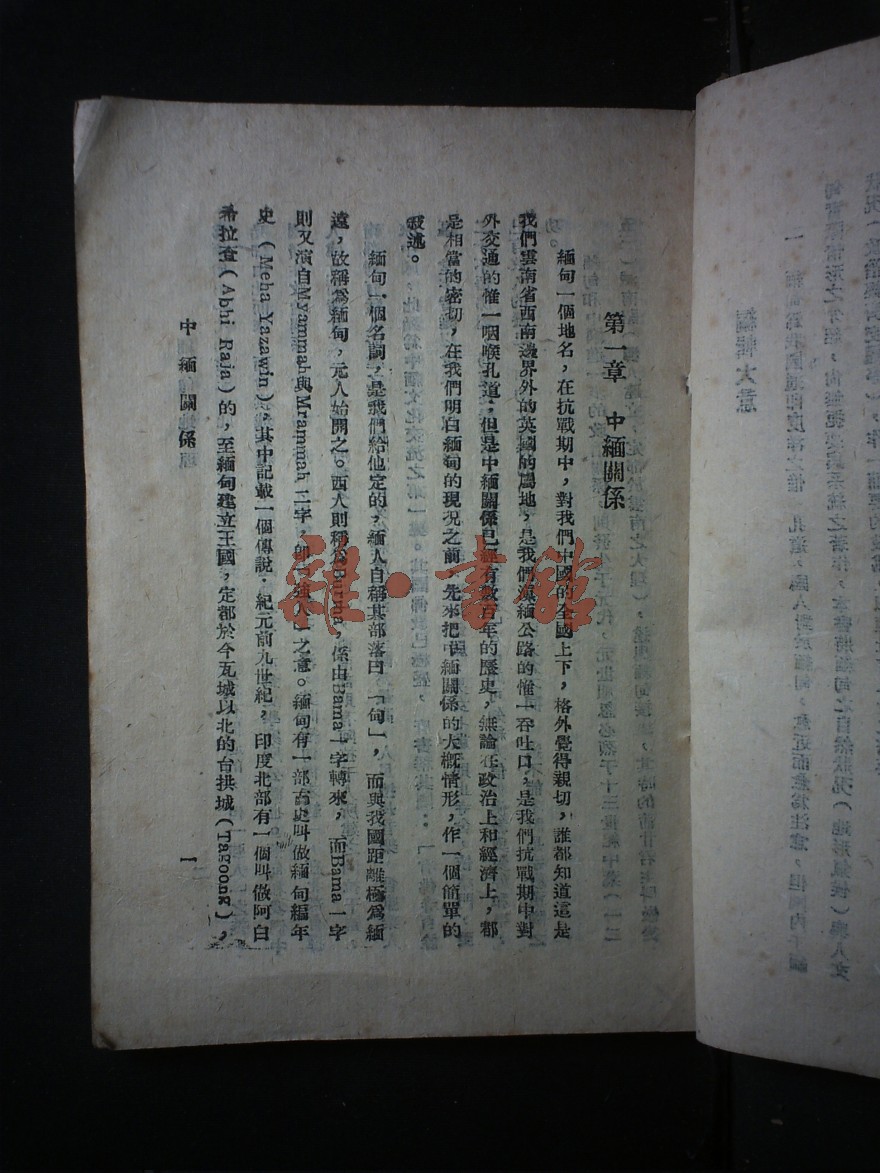 第一章　中緬關係
緬甸一個地名，在抗戰期中，對我們中國的全國上下，格外覺得親切，誰都知道這是
我們雲南省西南邊界外的英國的屬地，是我們滇緬公路的惟一吞吐口，是我們抗戰期中對
外交通的惟一咽喉孔道，但是中緬關係已經有數百年的歷史，無論在政治上和經濟上，都
是相當的密切，在我們明白緬甸的現況之前，先來把中緬關係的大概情形，作一個簡單的
敍述。
緬甸一個名詞，是我們給他定的，緬人自稱其部落曰「甸」，而與我國距離極爲緬
遠，故稱爲緬甸，元人始開之。西人則稱爲Burma，係由Bama一字轉來，而Bama一字
則又演自Myammah與Mrammah二字，卽「強人」之意。緬甸有一部古史叫做緬甸編年
史（Meha Yazawin）。其中記載一個傳說：紀元前九世紀，印度北部有一個叫做阿白
希拉查（Abhi Raja）的，至緬甸建立王國，定都於今瓦城以北的台拱城（Tagoong），
中緬關係
一
雜·書館
編輯大意